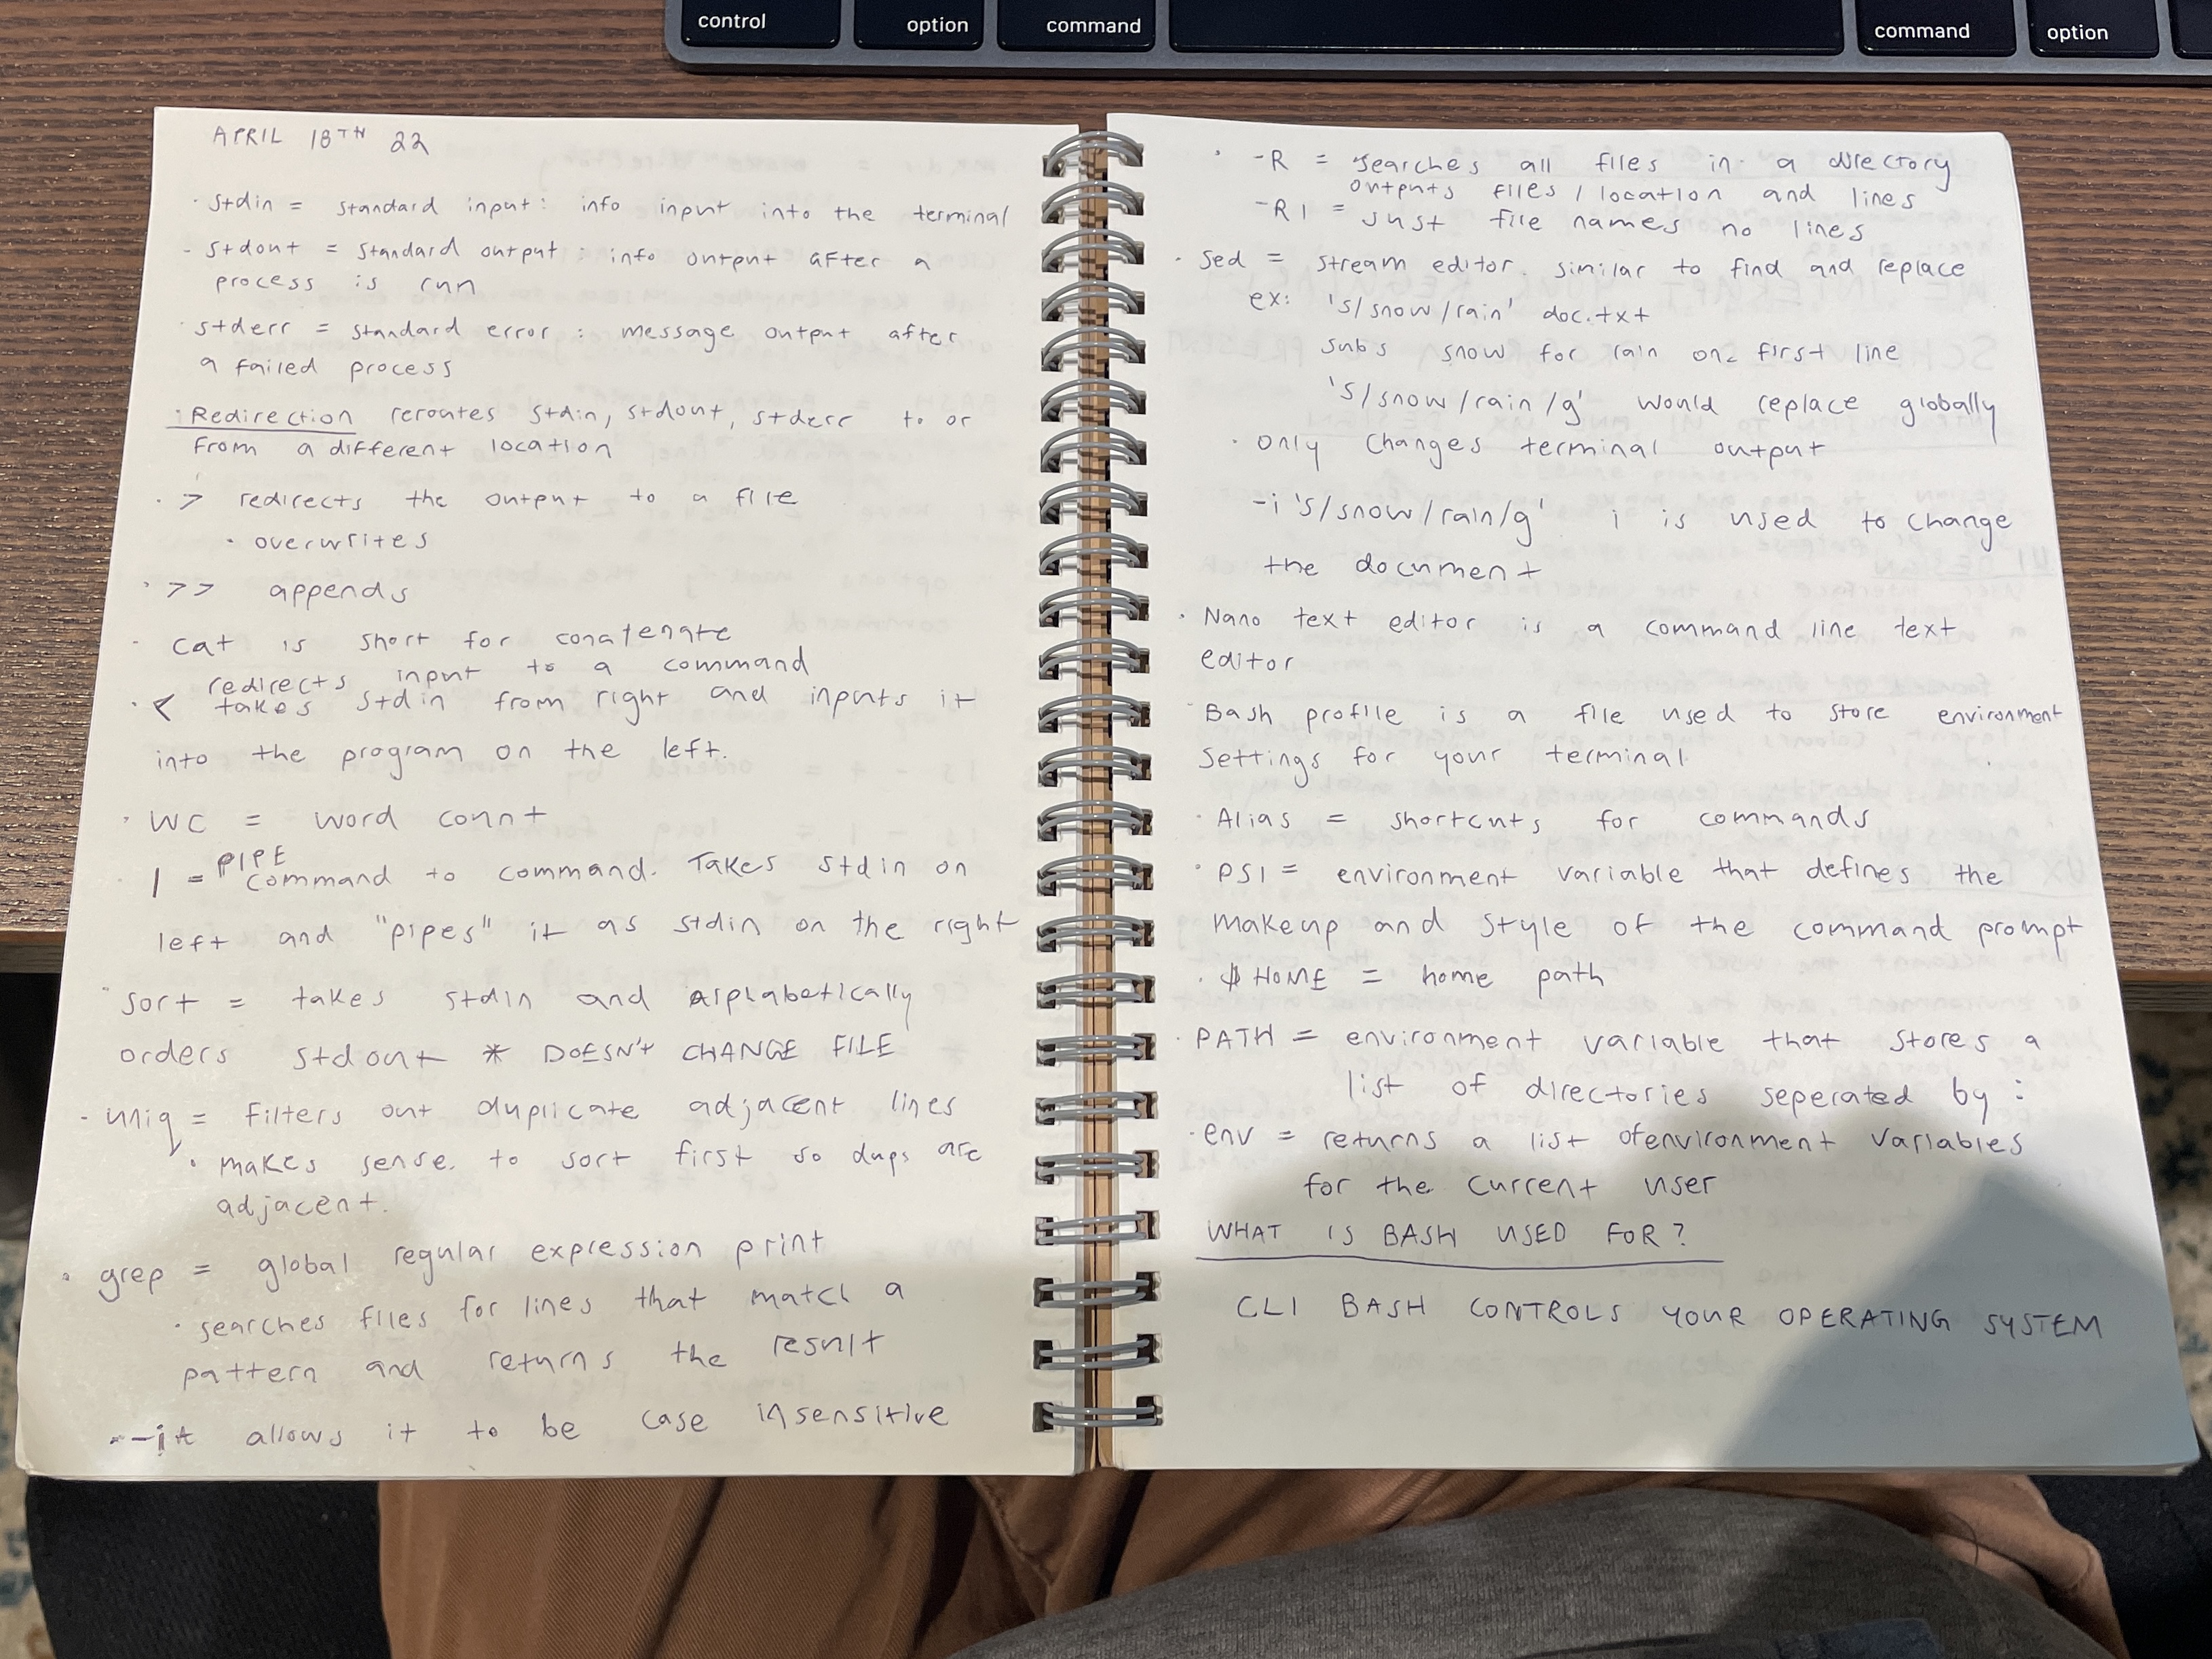 control
option
command
command
option
APRIL 18TH 22
· stdin = standard input: info input into the terminal
- stdout = standard output: info output after a
process is run
· stderr = standard error: message output after
a failed process
· Redirection reroutes stdin, stdout, stderr to or
from a different location
· > redirects the output to a file
· overwrites
· >> appends
· cat is short for conatenate
redirects input to a command
· < takes stdin from right and inputs it
into the program on the left.
· WC = word count
PIPE
· | = command to command. Takes stdin on
left and "pipes" it as stdin on the right
· sort = takes stdin and alphabetically
orders stdout * DOESN'T CHANGE FILE
· uniq = filters out duplicate adjacent lines
· makes sense to sort first so dups are
adjacent.
· grep = global regular expression print
· searches files for lines that match a
pattern and returns the result
· -i allows it to be case insensitive
· -R = searches all files in a directory
outputs files / location and lines
-Rl = just file names no lines
· sed = stream editor. similar to find and replace
ex: 's/snow/rain' doc.txt
subs snow for rain on first line
's/snow/rain/g' would replace globally
· only changes terminal output
-i 's/snow/rain/g' i is used to change
the document
· Nano text editor is a command line text
editor
· Bash profile is a file used to store environment
settings for your terminal
· Alias = shortcuts for commands
· PS1 = environment variable that defines the
makeup and style of the command prompt
· $HOME = home path
· PATH = environment variable that stores a
list of directories seperated by :
· env = returns a list of environment variables
for the current user
WHAT IS BASH USED FOR?
CLI BASH CONTROLS YOUR OPERATING SYSTEM